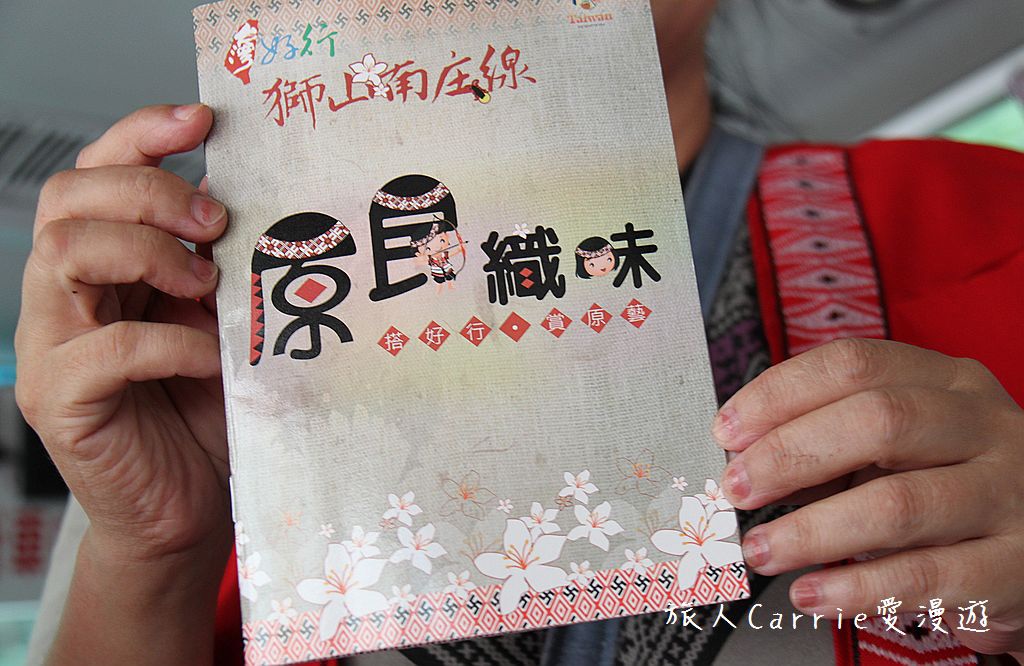 Taiwan
台灣好行
獅山南庄線
原民織味
搭好行・賞原藝
旅人Carrie愛漫遊